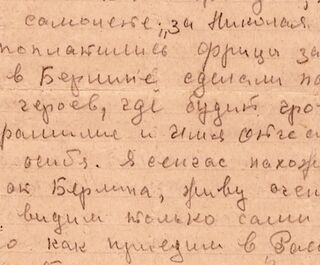 самолете: „за Николая
поплатились фрицы за
в Берлине сделали па
героев, где будит про
фамилие и имя отчес
особя. Я сейчас нахож
ок Берлина, живу очен
видим только сами
о как приедим в Росс